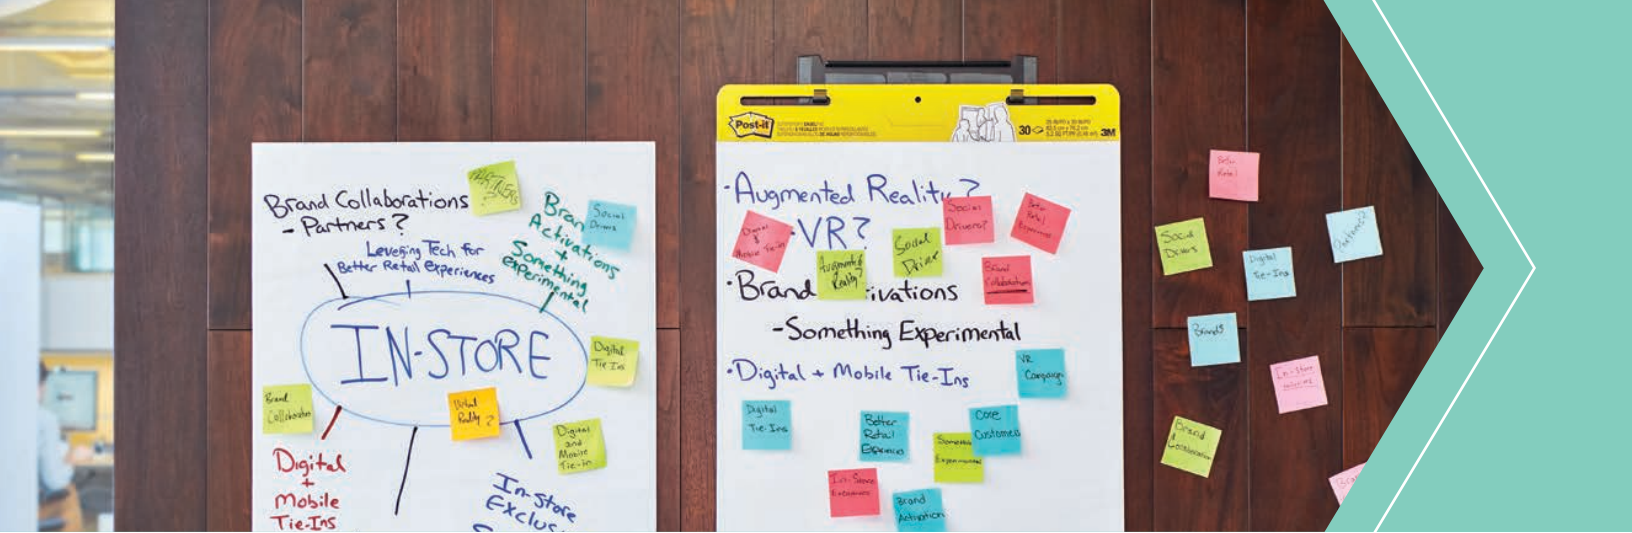 Brand Collaborations
- Partners?
PARTNERS
?
Leveging Tech for
Better Retail Experiences
Brand
Activations
+
Something
experimental
Social
Drivers
IN-STORE
Digital
Tie Ins
Brand
Collaboration
Virtual
Reality ?
Digital
and
Mobile
Tie-In
Digital
+
Mobile
Tie-Ins
In-store
Exclus
Post-it
30
3M
·Augmented Reality?
·VR?
Digital
Mobile Tie-Ins
Augmented
Reality?
Social
Driver
Social
Drivers?
Better
Retail
Experiences
Brand
Collaboration
·Brand ivations
-Something Experimental
·Digital + Mobile Tie-Ins
VR
Campaign
Digital
Tie-Ins
Better
Retail
Experiences
Core
Customers
Something
Experimental
In-Store
Brand
Activation
Better
Retail
Social
Drivers
Digital
Tie-Ins
Partners?
Brands
In-Store
Brand
Collaboration
Bra